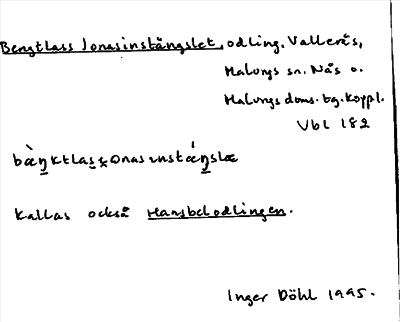 Bengtlass Jonasinstängslet, odling. Vallerås,
Malungs sn. Nås o.
Malungs doms. tg. koppl.
Vbl 182
bæ̀ŋktlas̱ jonas ɩnstǽŋslæ
Kallas också Hansbolodlingen.
Inger Döhl 1995.